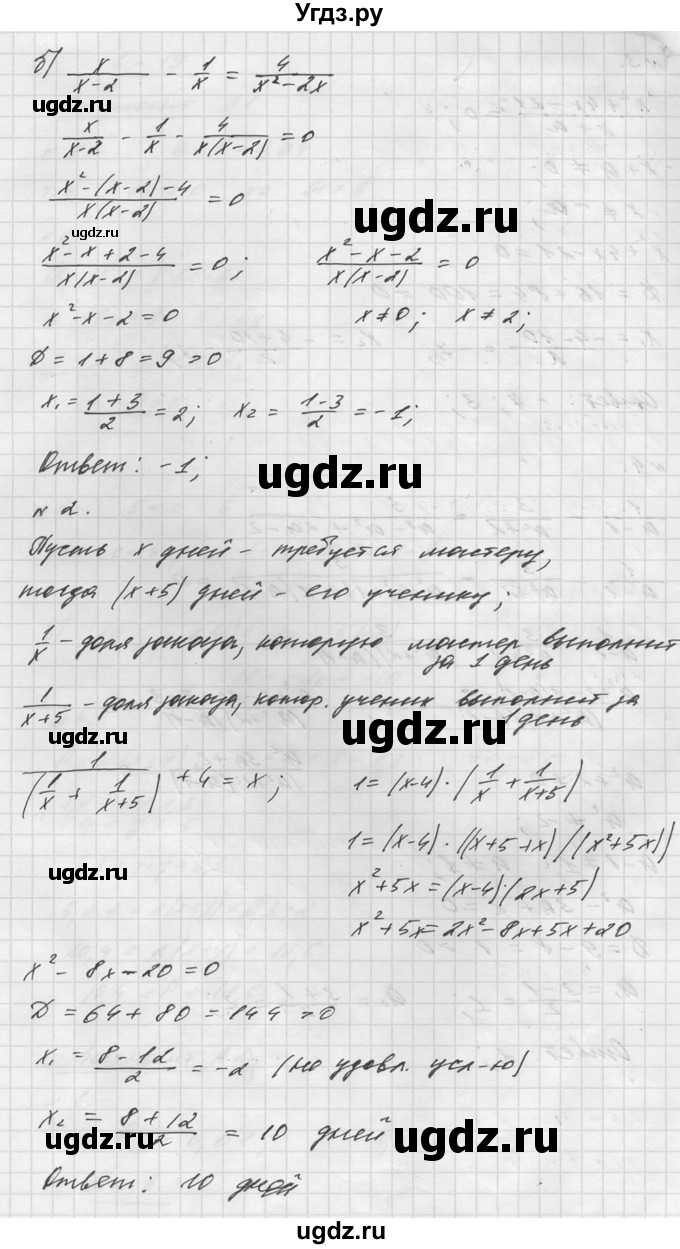 Угдз.ру
б) x/(x-2) - 1/x = 4/(x²-2x)
ugdz.ru
x/(x-2) - 1/x - 4/(x(x-2)) = 0
(x²-(x-2)-4)/(x(x-2)) = 0
ugdz.ru
ugdz.ru
(x²-x+2-4)/(x(x-2)) = 0; (x²-x-2)/(x(x-2)) = 0
x²-x-2=0 x≠0; x≠2;
ugdz.ru
D=1+8=9>0
x₁ = (1+3)/2 = 2; x₂ = (1-3)/2 = -1;
Ответ: -1;
ugdz.ru
N 2.
ugdz.ru
Пусть x дней - требуется мастеру,
тогда (x+5) дней - его ученику;
1/x - доля заказа, которую мастер выполнит
за 1 день
ugdz.ru
1/(x+5) - доля заказа, котор. ученик выполнит за
1 день
ugdz.ru
ugdz.ru
1/(1/x + 1/(x+5)) + 4 = x; 1=(x-4)·(1/x + 1/(x+5))
1=(x-4)·((x+5+x)/(x²+5x))
ugdz.ru
x²+5x=(x-4)(2x+5)
x²+5x=2x²-8x+5x+20
x²-8x-20=0
D=64+80=144>0
ugdz.ru
x₁ = (8-12)/2 = -2 (не удовл. усл-ю)
x₂ = (8+12)/2 = 10 дней
ugdz.ru
ugdz.ru
Ответ: 10 дней
ugdz.ru